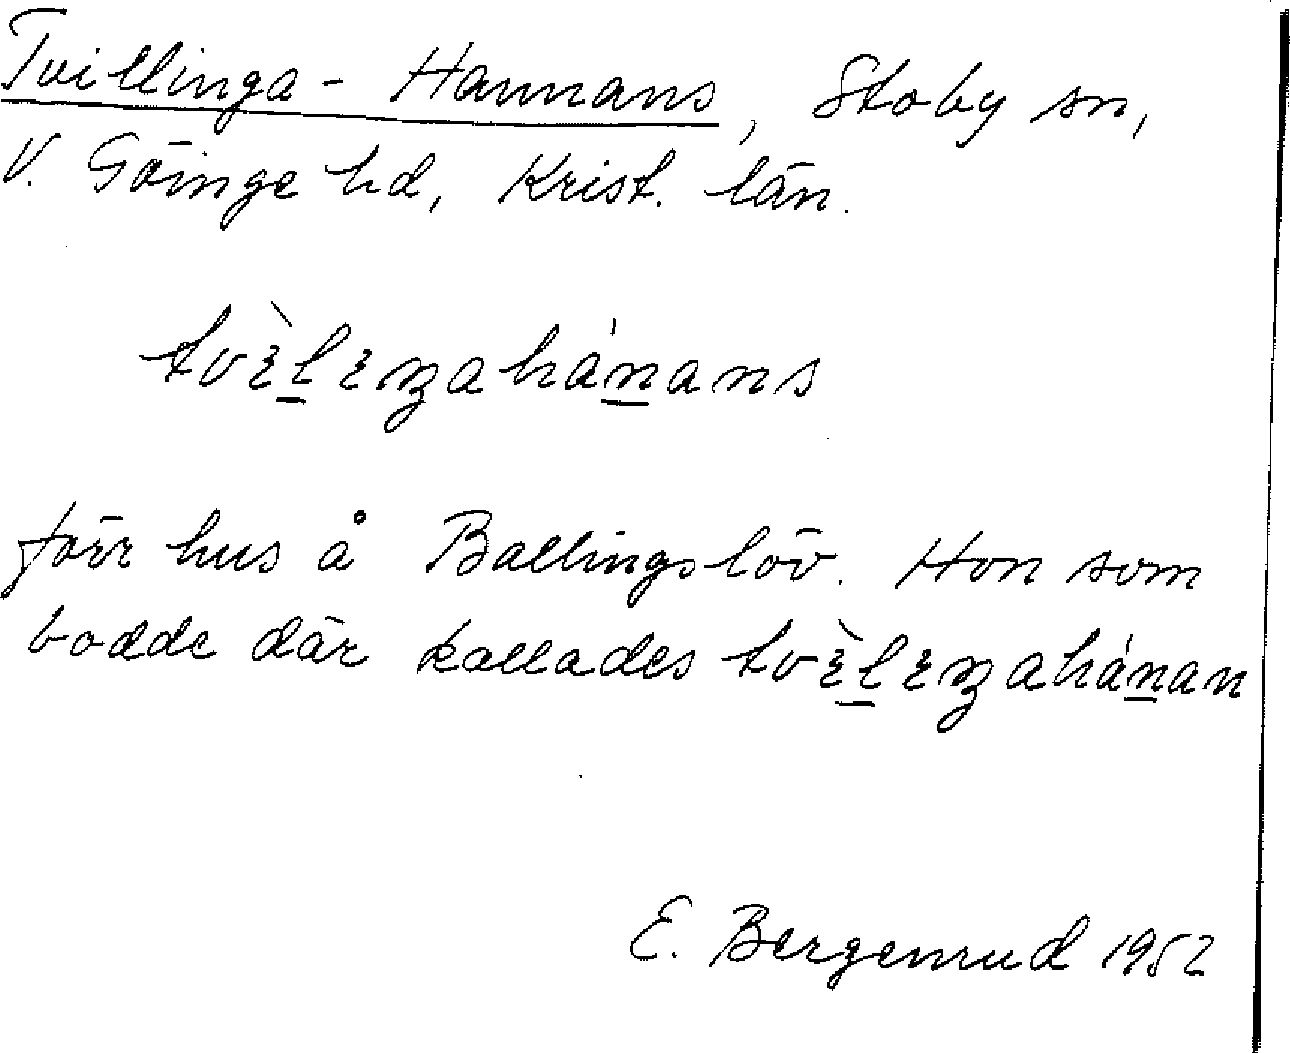 Tvillinga-Hannans, Stoby sn,
V. Göinge hd, Krist. län.
tvὲlɛŋahánans
förr hus å Ballingslöv. Hon som
bodde där kallades tvὲlɛŋahánan
E. Bergenrud 1952